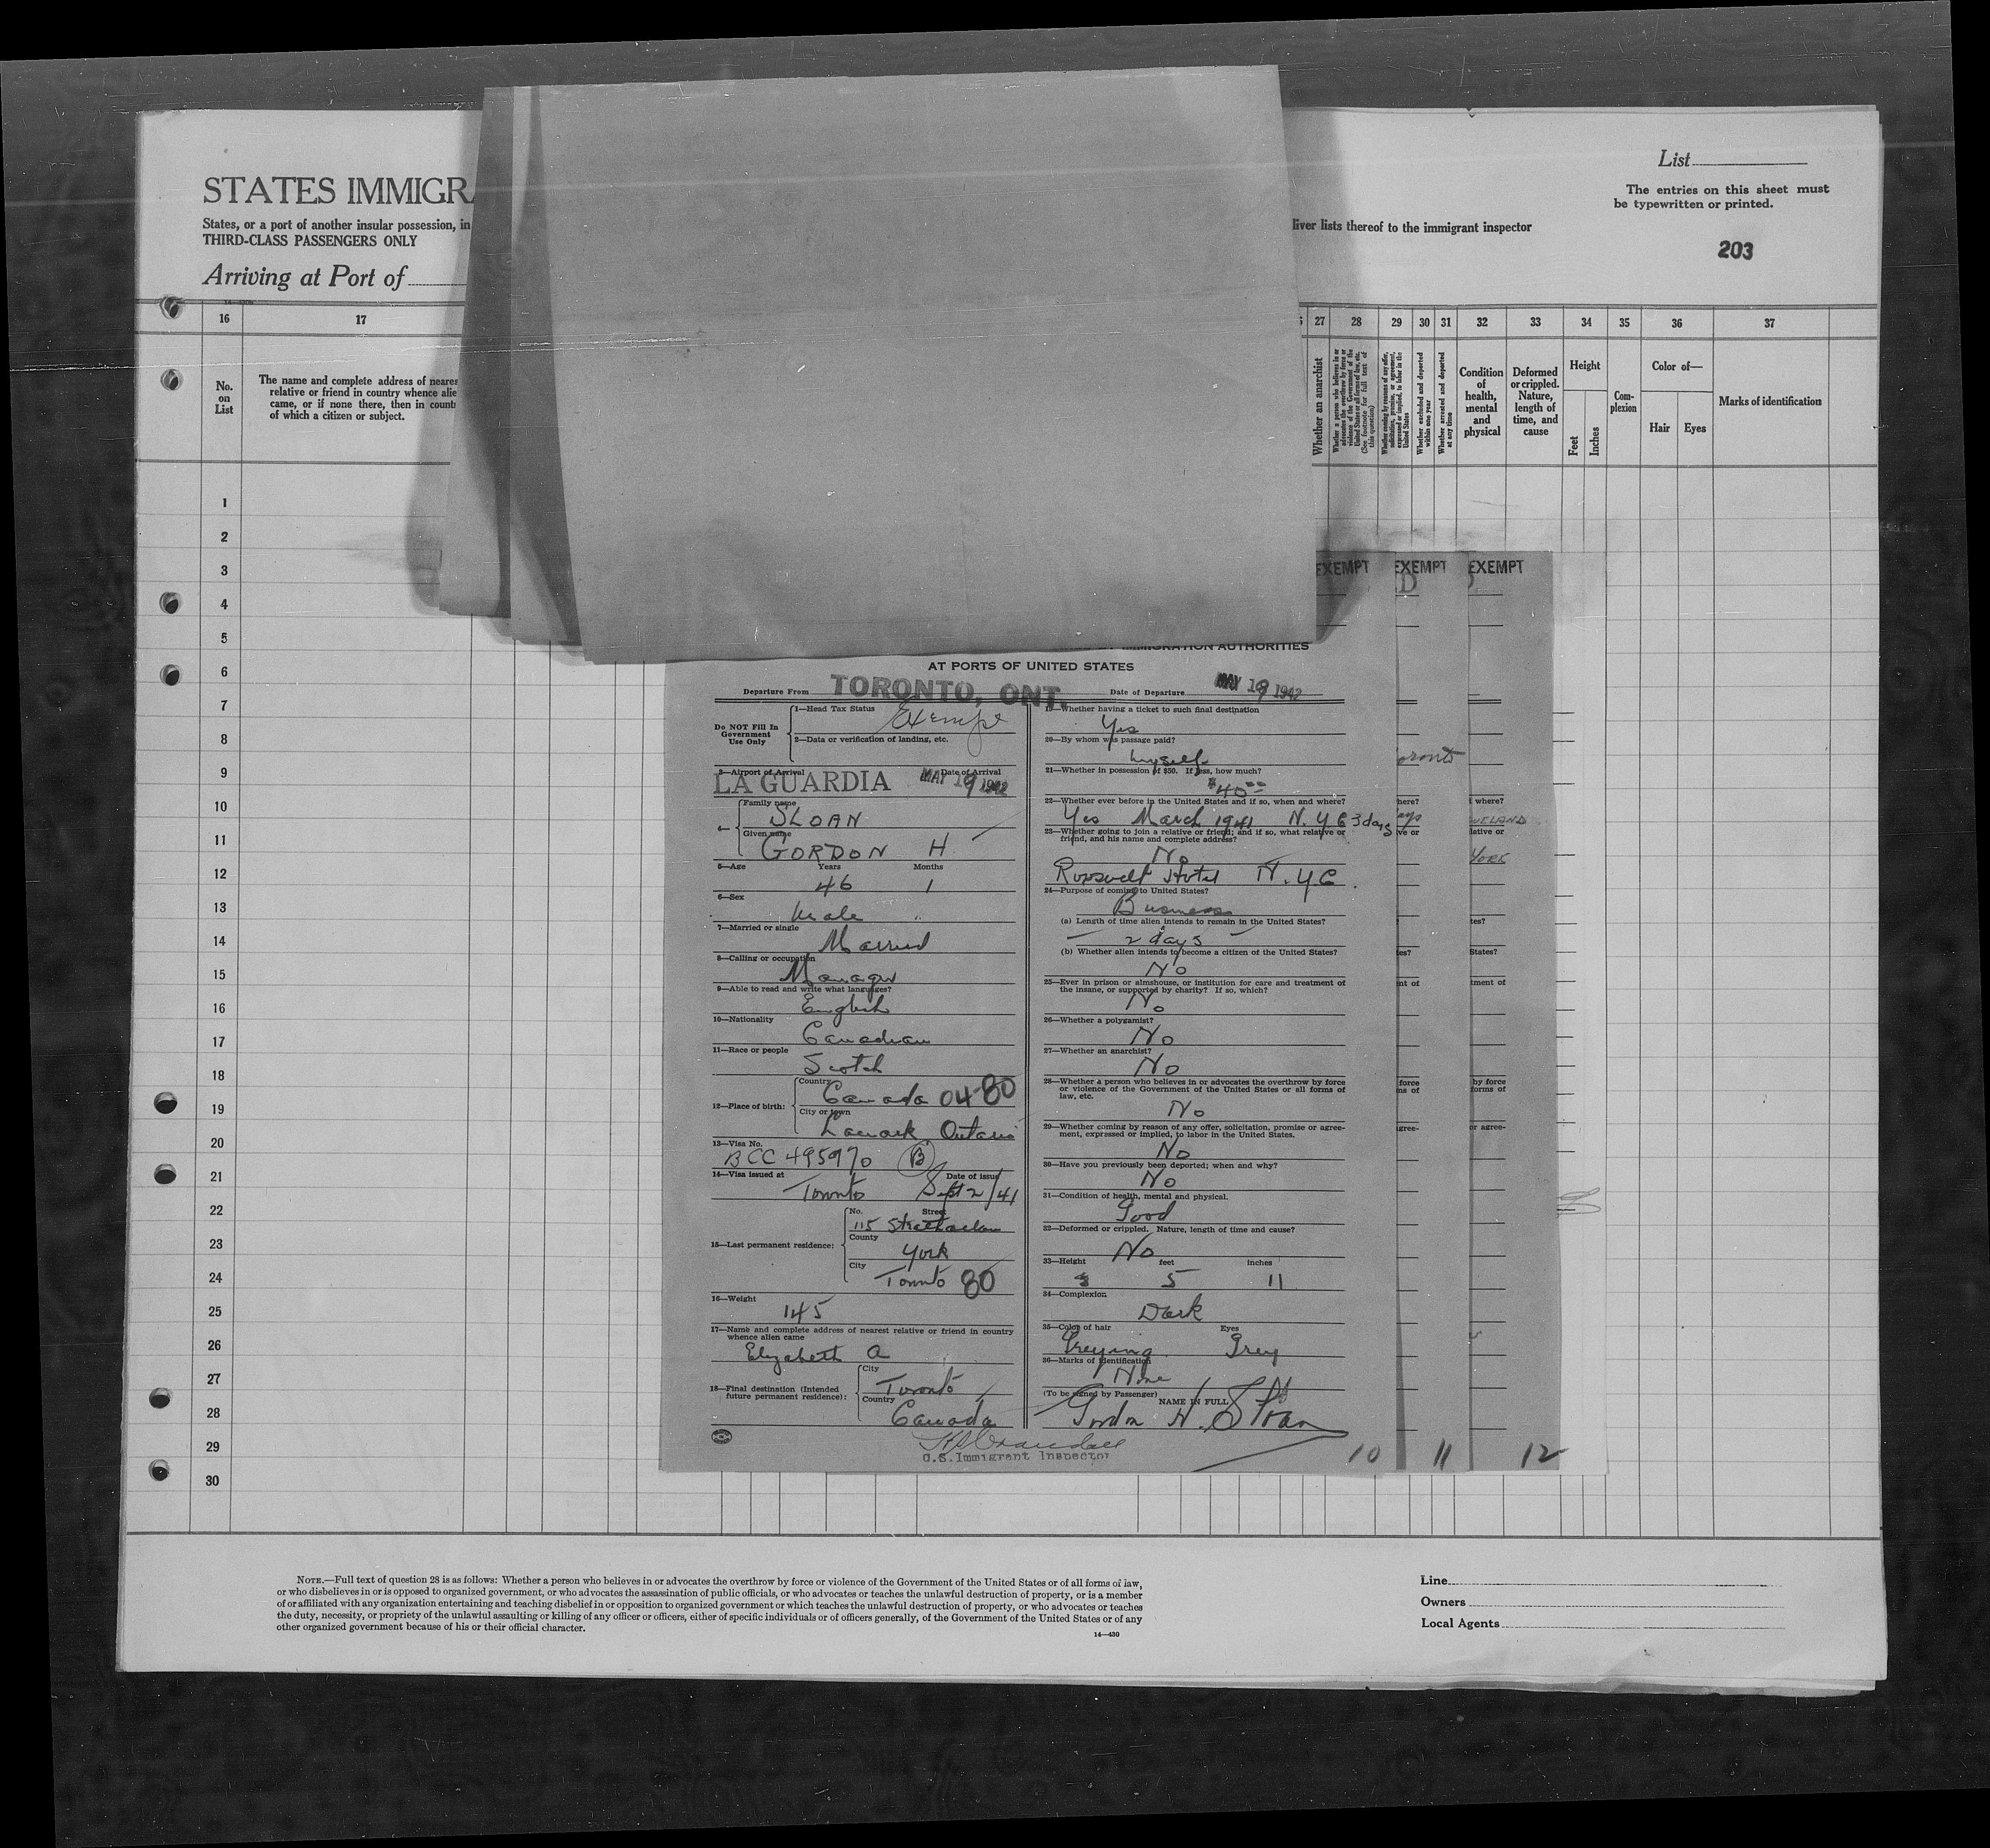 List
STATES IMMIGRA
The entries on this sheet must
be typewritten or printed.
States, or a port of another insular possession, in
liver lists thereof to the immigrant inspector
THIRD-CLASS PASSENGERS ONLY
203
Arriving at Port of
16 17 27 28 29 30 31 32 33 34 35 36 37
No.
on
List
The name and complete address of neares
relative or friend in country whence alie
came, or if none there, then in count
of which a citizen or subject.
Whether an anarchist
Whether a person who believes in or
advocates the overthrow by force or
violence of the Government of the
United States or all forms of law, etc.
(See footnote for full text of
this question)
Whether coming by reason of any offer,
solicitation, promise, or agreement,
expressed or implied, to labor in the
United States
Whether excluded and deported
within one year
Whether arrested and deported
at any time
Condition
of
health,
mental
and
physical
Deformed
or crippled.
Nature,
length of
time, and
cause
Height
Feet
Inches
Com-
plexion
Color of—
Hair Eyes
Marks of identification
1
2
3
4
5
6
7
8
9
10
11
12
13
14
15
16
17
18
19
20
21
22
23
24
25
26
27
28
29
30
EXEMPT EXEMPT EXEMPT
IMMIGRATION AUTHORITIES
AT PORTS OF UNITED STATES
Departure From TORONTO, ONT. Date of Departure MAY 19 1942
Do NOT Fill In
Government
Use Only
1—Head Tax Status Exempt
2—Data or verification of landing, etc.
3—Airport of Arrival Date of Arrival
LA GUARDIA MAY 19 1942
4— Family name
SLOAN
Given name
GORDON H
5—Age Years Months
46 1
6—Sex
Male
7—Married or single
Married
8—Calling or occupation
Manager
9—Able to read and write what languages?
English
10—Nationality
Canadian
11—Race or people
Scotch
12—Place of birth: Country
Canada 04-80
City or town
Lanark Ontario
13—Visa No.
BCC 495970 B
14—Visa issued at Date of issue
Toronto Sept 2/41
15—Last permanent residence: No. Street
115
County
York
City
Toronto 80
16—Weight
145
17—Name and complete address of nearest relative or friend in country
whence alien came
Elizabeth A
18—Final destination (Intended
future permanent residence):
City
Toronto
Country
Canada
19—Whether having a ticket to such final destination
Yes
20—By whom was passage paid?
Myself
21—Whether in possession of $50. If less, how much?
$40.00
22—Whether ever before in the United States and if so, when and where?
Yes March 1941 N.Y.C 3 days
23—Whether going to join a relative or friend; and if so, what relative or
friend, and his name and complete address?
No
Roosevelt Hotel N.Y.C.
24—Purpose of coming to United States?
Business
(a) Length of time alien intends to remain in the United States?
2 days
(b) Whether alien intends to become a citizen of the United States?
No
25—Ever in prison or almshouse, or institution for care and treatment of
the insane, or supported by charity? If so, which?
No
26—Whether a polygamist?
No
27—Whether an anarchist?
No
28—Whether a person who believes in or advocates the overthrow by force
or violence of the Government of the United States or all forms of
law, etc.
No
29—Whether coming by reason of any offer, solicitation, promise or agree-
ment, expressed or implied, to labor in the United States.
No
30—Have you previously been deported; when and why?
No
31—Condition of health, mental and physical.
Good
32—Deformed or crippled. Nature, length of time and cause?
No
33—Height feet inches
5 11
34—Complexion
Dark
35—Color of hair Eyes
Greying Grey
36—Marks of identification
None
(To be signed by Passenger) NAME IN FULL
Gordon H. Sloan
U.S. Immigrant Inspector
oronto
here?
ays
ve or
tes?
nt of
force
ms of
agree-
where?
VELAND
lative or
YORK
tes?
States?
tment of
by force
forms of
or agree-
10 11 12
NOTE.—Full text of question 28 is as follows: Whether a person who believes in or advocates the overthrow by force or violence of the Government of the United States or of all forms of law,
or who disbelieves in or is opposed to organized government, or who advocates the assassination of public officials, or who advocates or teaches the unlawful destruction of property, or is a member
of or affiliated with any organization entertaining and teaching disbelief in or opposition to organized government or which teaches the unlawful destruction of property, or who advocates or teaches
the duty, necessity, or propriety of the unlawful assaulting or killing of any officer or officers, either of specific individuals or of officers generally, of the Government of the United States or of any
other organized government because of his or their official character.
14—430
Line
Owners
Local Agents